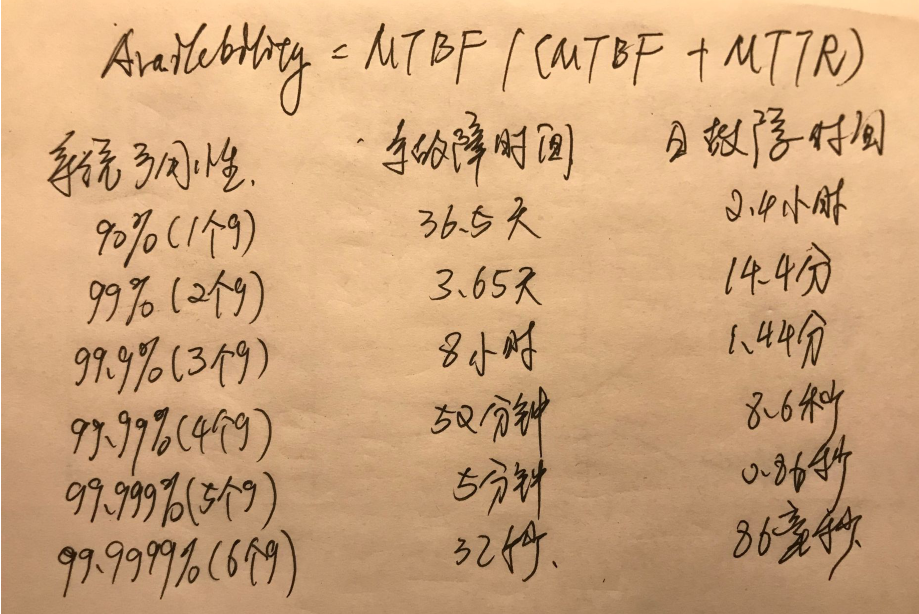 Availebility = MTBF / (MTBF + MTTR)
系统可用性 年故障时间 日故障时间
90% (1个9) 36.5天 2.4小时
99% (2个9) 3.65天 14.4分
99.9% (3个9) 8小时 1.44分
99.99% (4个9) 52分钟 8.6秒
99.999% (5个9) 5分钟 0.86秒
99.9999% (6个9) 32秒 86毫秒